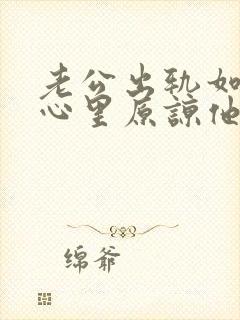 老公出轨如
心里原谅他
绵爷